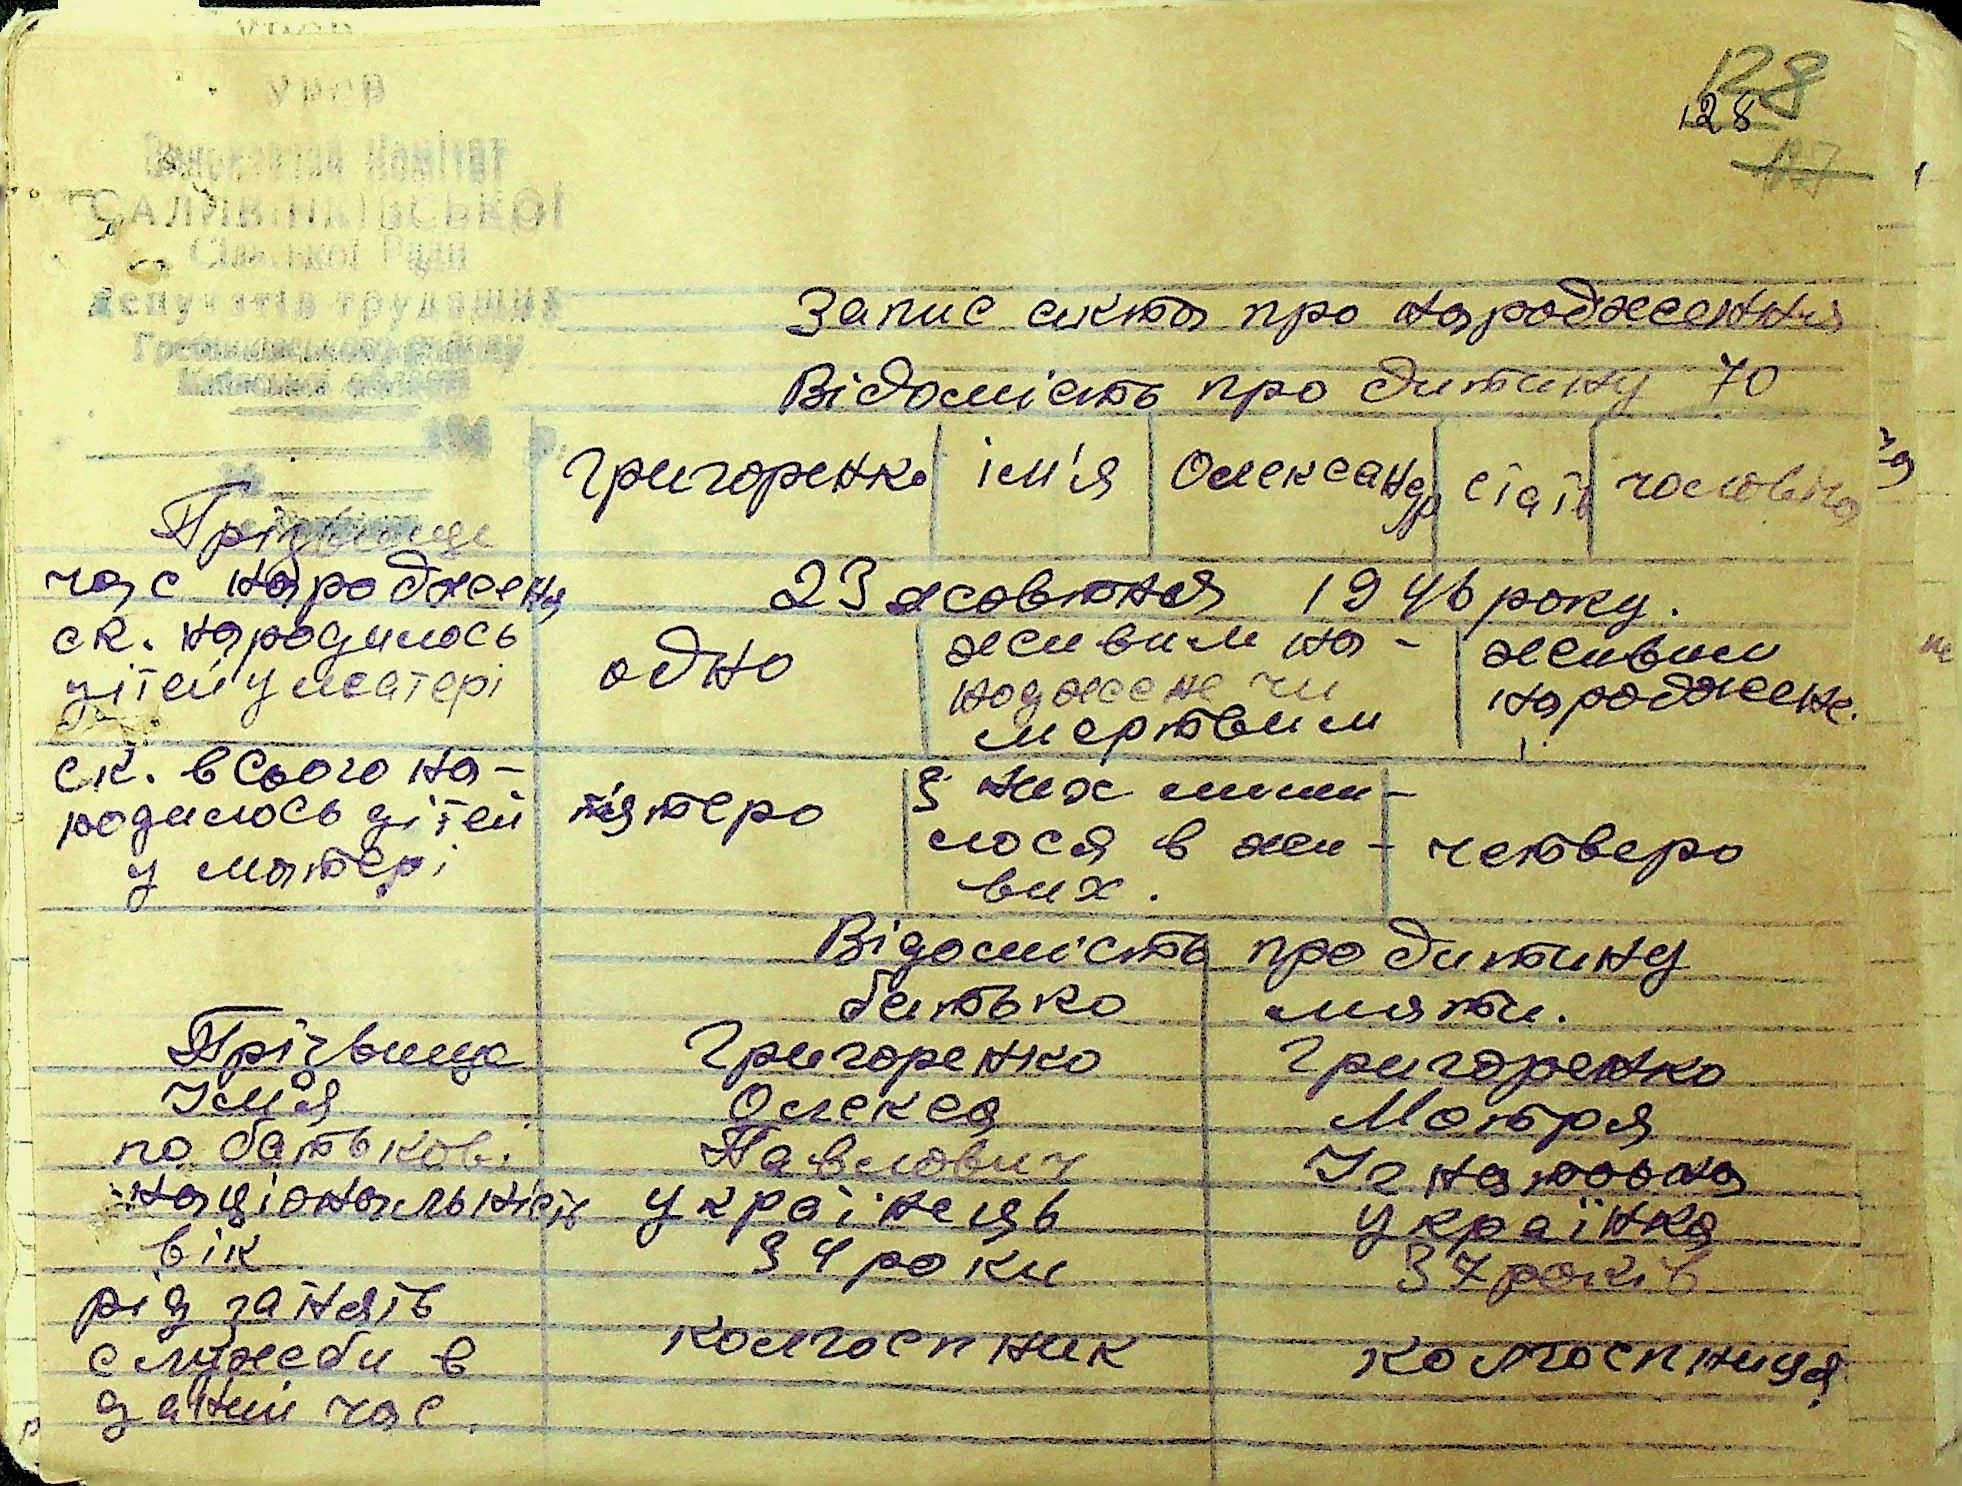 УРСР
Виконавчий Комітет
САЛИВІНКІВСЬКОЇ
Сільської Ради
депутатів трудящих
Гребінківського району
Київської області
194 р.
128
128
127
Запис акта про народження
Відомість про дитину 70
Прізвище Григоренко ім'я Олександр стать чоловіча
час народження 23 жовтня 1946 року.
ск. народилось дітей у матері одно живим народжене чи мертвим живим народжене.
ск. всього народилось дітей у матері п'ятеро з них лишилося в живих. четверо
Відомість про дитину
батько мати.
Прізвище Григоренко Григоренко
Ім'я Олекса Мотря
по батькові Павлович Ігнатовна
національність українець українка
вік 34 роки 37 років
рід занять служби в даний час. колгоспник колгоспниця